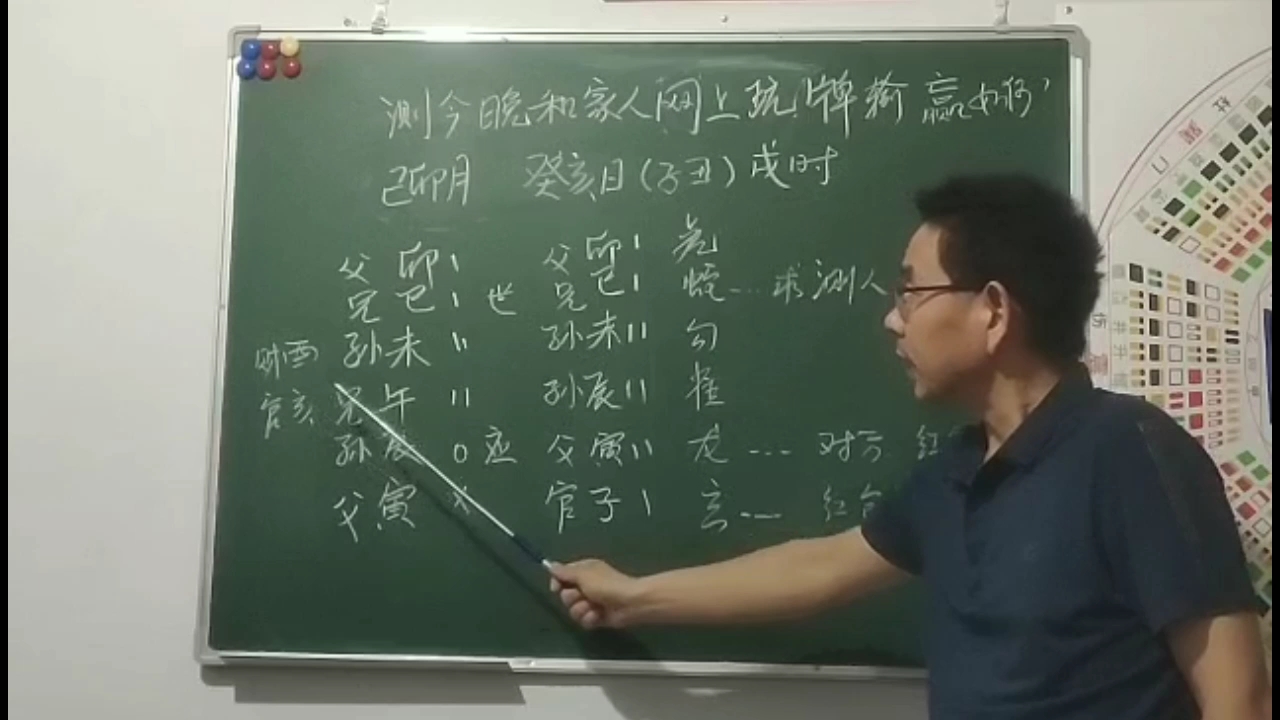 测今晚和家人网上玩牌输赢如何?
己卯月 癸亥日(子丑)戌时
父卯、 父卯、 虎
兄巳、世 兄巳、 蛇…求测人
财酉 孙未〃 孙未〃 勾
官亥 兄午〃 孙辰〃 雀
孙辰o应 父寅〃 龙…对方 红
父寅x 官子、 玄…红包